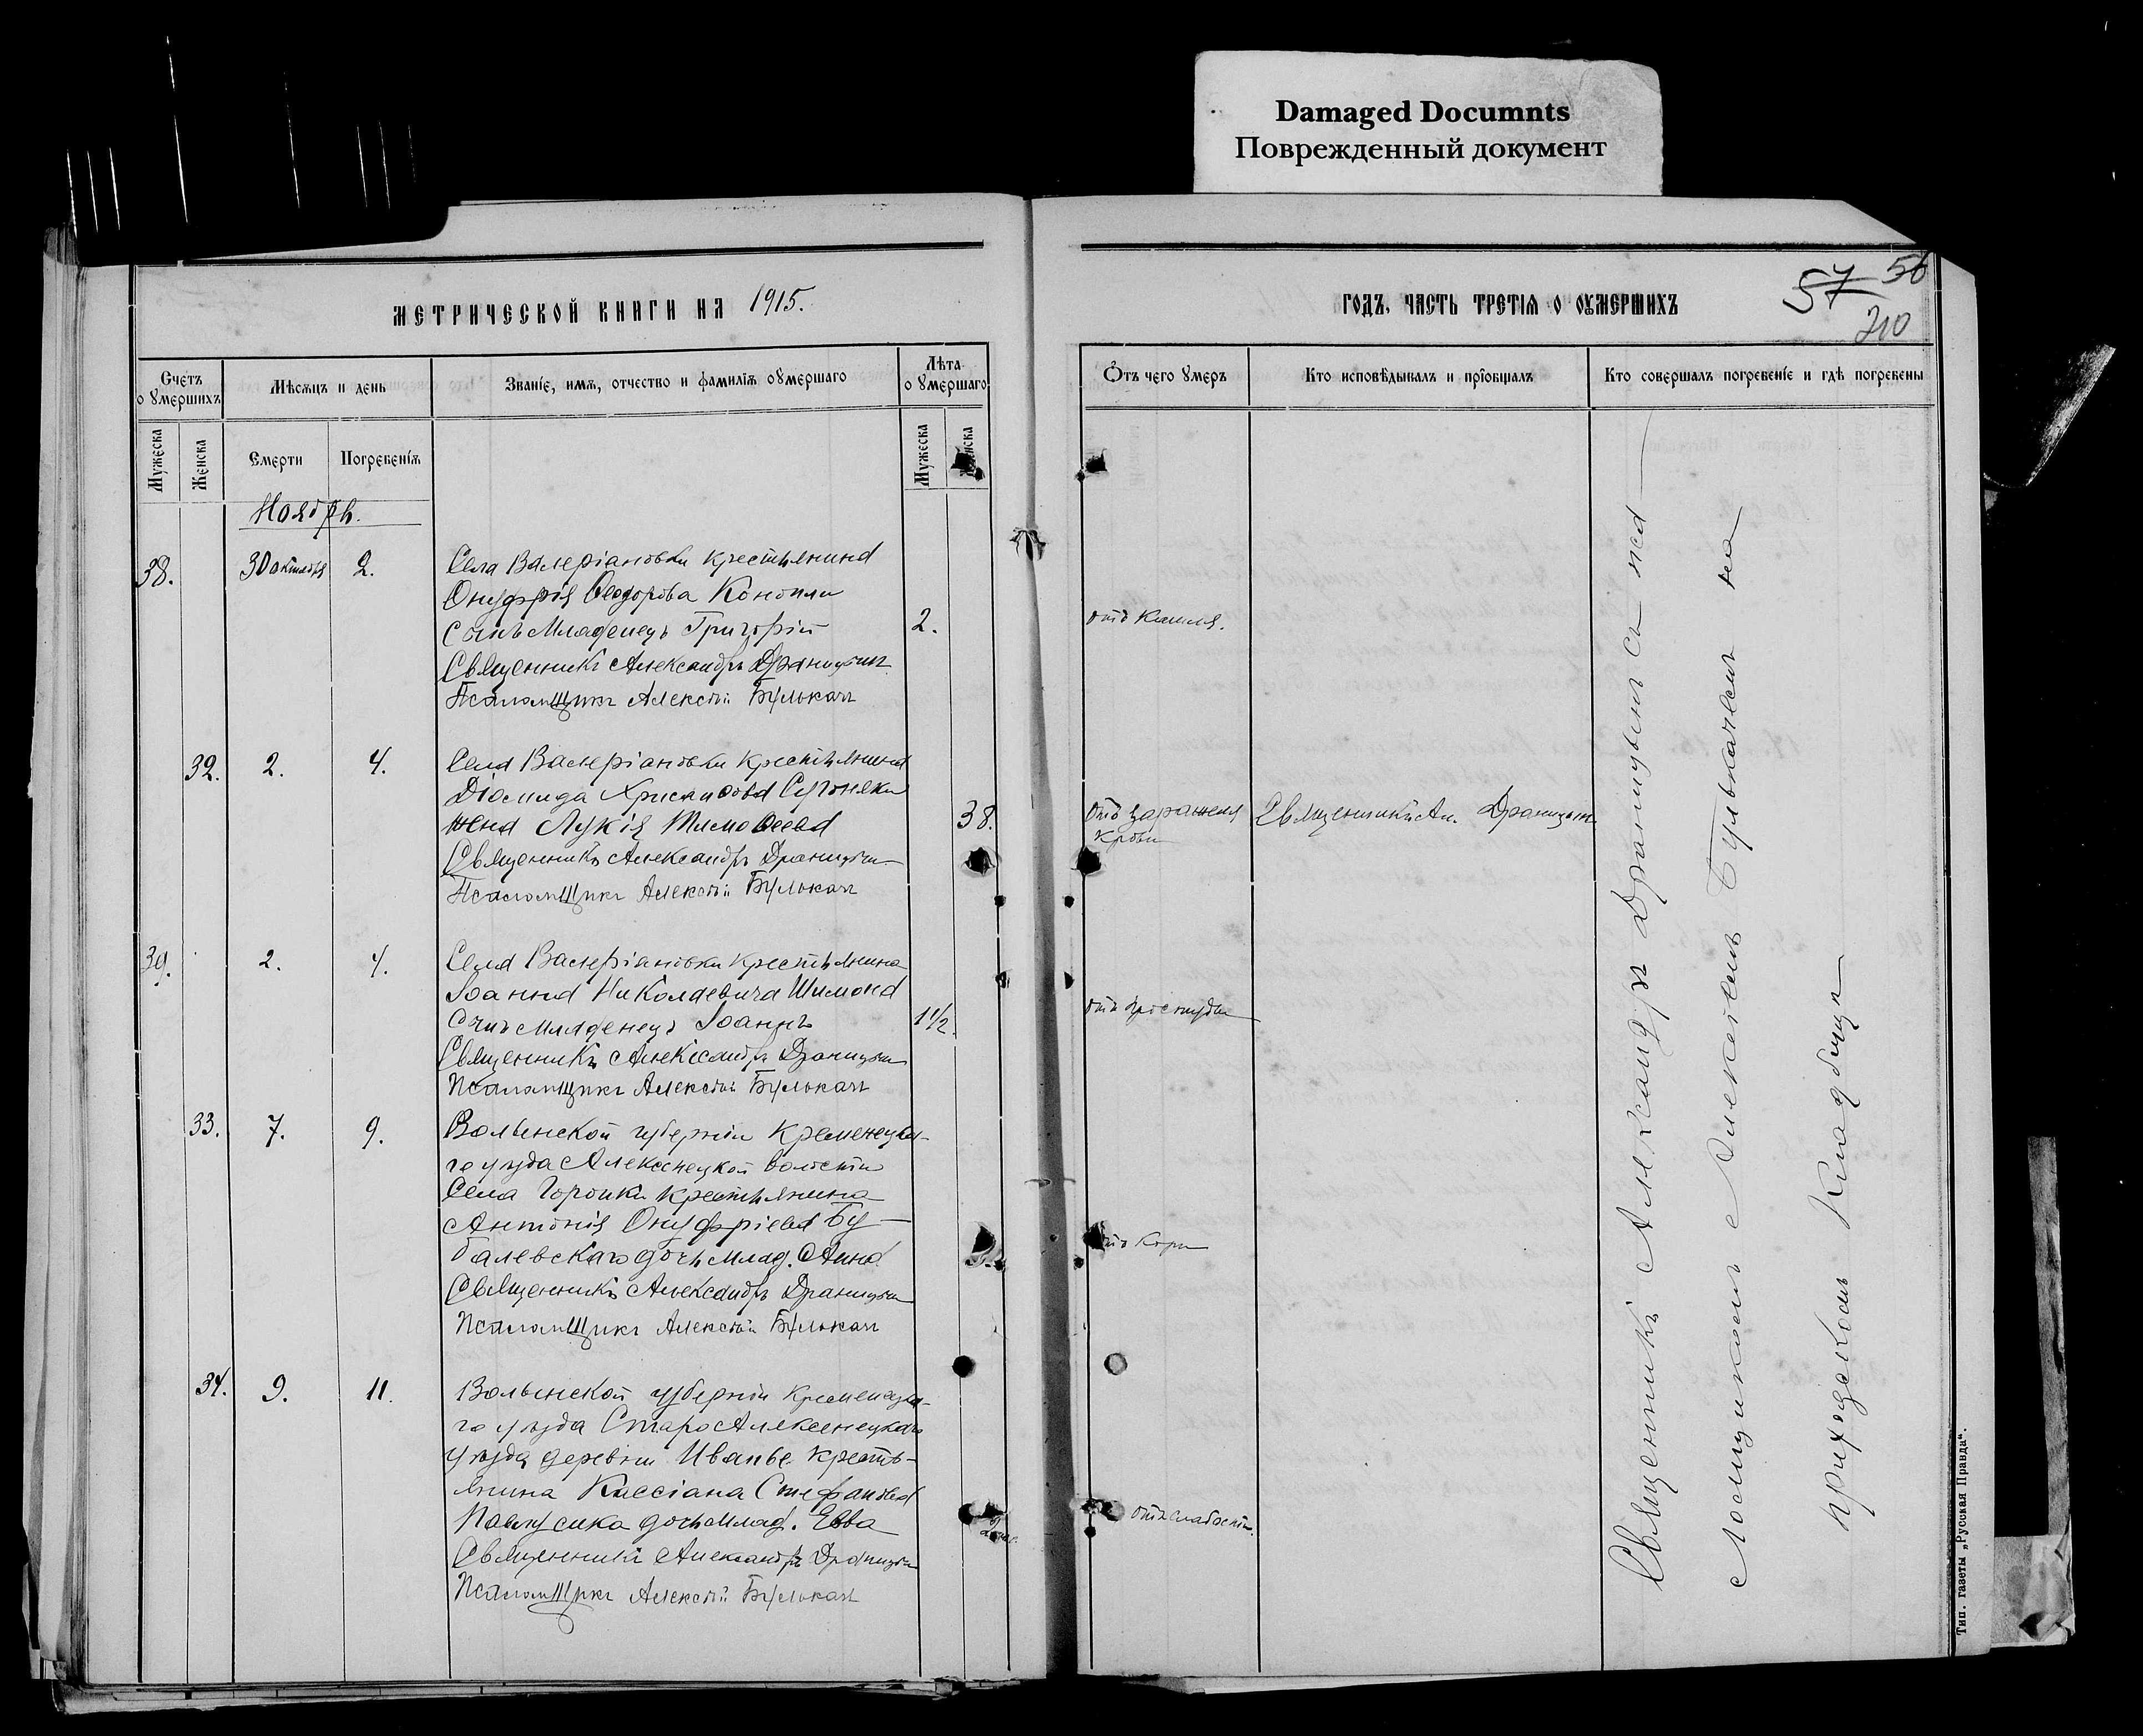 Damaged Documnts
Поврежденный документ
МЕТРИЧЕСКОЙ КНИГИ НА 1915.
ГОДЪ, ЧАСТЬ ТРЕТІЯ О ОУМЕРШИХЪ
57 56
210
Счетъ о умершихъ
Мѣсяцъ и день
Званіе, имя, отчество и фамилія оумершаго
Лѣта оумершаго
Отъ чего умеръ
Кто исповѣдывалъ и пріобщалъ
Кто совершалъ погребеніе и гдѣ погребены
Мужеска
Женска
Смерти
Погребенія
Мужеска
Женска
Ноябрь.
38. 30 октября 2. Села Валеріановки крестьянина
Онуфрія Ѳеодорова Конопли
сынъ младенецъ Григорій 2. отъ кашля.
Священникъ Александръ Драницынъ
Псаломщикъ Алексѣй Булькачъ
32. 2. 4. Села Валеріановки крестьянина
Діомида Хрисанѳова
жена Лукія Тимоѳеева 38. отъ зараженія крови Священникъ Ал. Драницынъ
Священникъ Александръ Драницынъ
Псаломщикъ Алексѣй Булькачъ
39. 2. 4. Села Валеріановки крестьянина
Іоанна Николаевича Шимона
сынъ младенецъ Іоаннъ 1 1/2. отъ простуды
Священникъ Александръ Драницынъ
Псаломщикъ Алексѣй Булькачъ
33. 7. 9. Волынской губерніи Кременецка-
го уѣзда Алексенецкой волости
Села Горонки крестьянина
Антонія Онуфріева Бу-
балевскаго дочь млад. Анна отъ кори
Священникъ Александръ Драницынъ
Псаломщикъ Алексѣй Булькачъ
34. 9. 11. Волынской губерніи Кременецка-
го уѣзда Староалексенецкаго
уѣзда деревни Иванье кресть-
янина Кассіана Стефанова
Павлусика дочь млад. Евва отъ слабости.
Священникъ Александръ Драницынъ
Псаломщикъ Алексѣй Булькачъ
Священникъ Александръ Драницынъ съ пса
ломщикомъ Алексѣемъ Булькачемъ на
приходскомъ кладбищѣ
Тип. газеты „Русская Правда“.